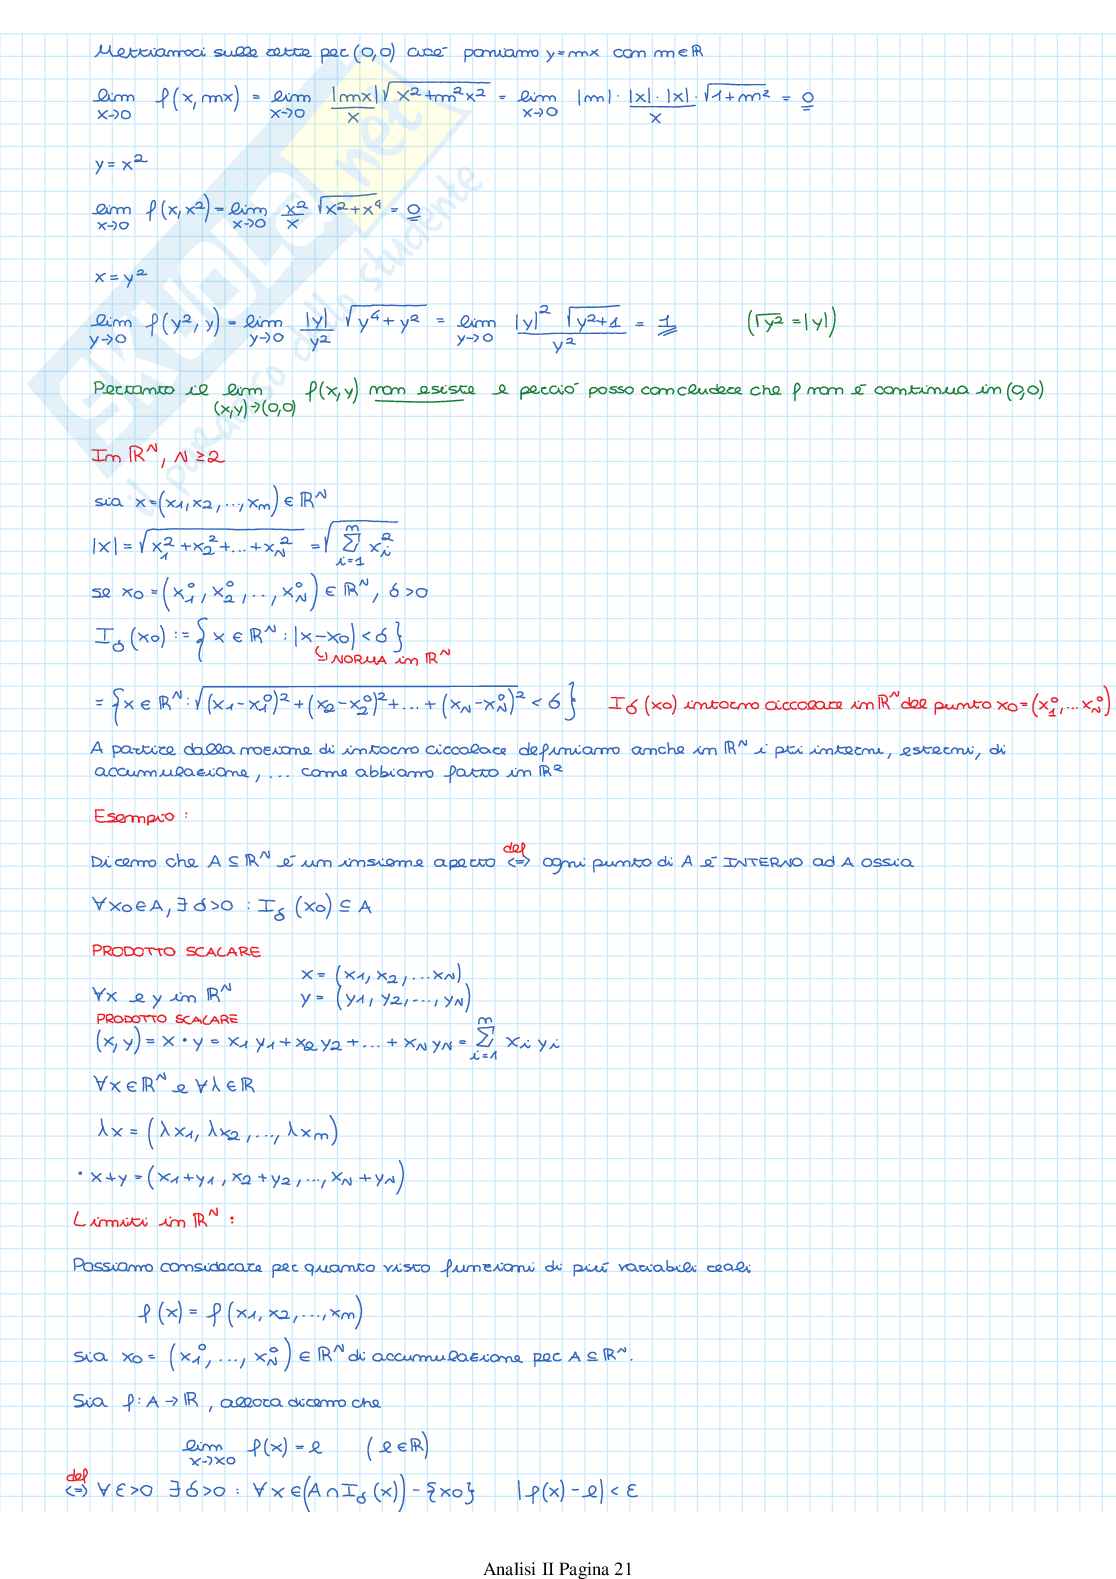 Mettiamoci sulle rette per (0,0) cioè poniamo y=mx con m∈ℝ
lim x→0 f(x,mx) = lim x→0 |mx|√(x²+m²x²) / x = lim x→0 |m|·|x|·|x|·√(1+m²) / x = 0
y = x²
lim x→0 f(x,x²) = lim x→0 x²/x √(x²+x⁴) = 0
x = y²
lim y→0 f(y²,y) = lim y→0 |y|/y² √(y⁴+y²) = lim y→0 |y|² √(y²+1) / y² = 1 (√y² = |y|)
Pertanto il lim (x,y)→(0,0) f(x,y) non esiste e perciò posso concludere che f non è continua in (0,0)
In ℝᴺ, N ≥ 2
sia x=(x₁,x₂,..,xₙ) ∈ ℝᴺ
|x| = √(x₁²+x₂²+...+x_N²) = √(∑ᵢ₌₁ⁿ xᵢ²)
se x₀ = (x₁⁰, x₂⁰, .., x_N⁰) ∈ ℝᴺ, δ>0
I_δ(x₀) := { x ∈ ℝᴺ : |x-x₀| < δ }
↳ NORMA in ℝᴺ
= { x ∈ ℝᴺ : √((x₁-x₁⁰)²+(x₂-x₂⁰)²+...+(x_N-x_N⁰)²) < δ } I_δ(x₀) intorno circolare in ℝᴺ del punto x₀=(x₁⁰,...x_N⁰)
A partire dalla nozione di intorno circolare definiamo anche in ℝᴺ i pti interni, esterni, di
accumulazione, ... come abbiamo fatto in ℝ²
Esempio :
Diremo che A ⊆ ℝᴺ è un insieme aperto <=> def ogni punto di A è INTERNO ad A ossia
∀x₀∈A, ∃ δ>0 : I_δ(x₀) ⊆ A
PRODOTTO SCALARE
x = (x₁, x₂, ...x_N)
∀x e y in ℝᴺ y = (y₁, y₂, ..., y_N)
PRODOTTO SCALARE
(x,y) = x · y = x₁y₁+x₂y₂+...+x_N y_N = ∑ᵢ₌₁ⁿ xᵢ yᵢ
∀x∈ℝᴺ e ∀λ∈ℝ
λx = (λx₁, λx₂, ..., λxₙ)
· x+y = (x₁+y₁, x₂+y₂, ..., x_N+y_N)
Limiti in ℝᴺ :
Possiamo considerare per quanto visto funzioni di più variabili reali
f(x) = f(x₁, x₂, ..., xₙ)
sia x₀ = (x₁⁰, ..., x_N⁰) ∈ ℝᴺ di accumulazione per A ⊆ ℝᴺ.
Sia f: A → ℝ, allora diremo che
lim x→x₀ f(x) = l (l∈ℝ)
def <=> ∀ε>0 ∃δ>0 : ∀x∈(A∩I_δ(x))-{x₀} |f(x)-l| < ε
Analisi II Pagina 21
SKUOLA.net
il paradiso dello studente